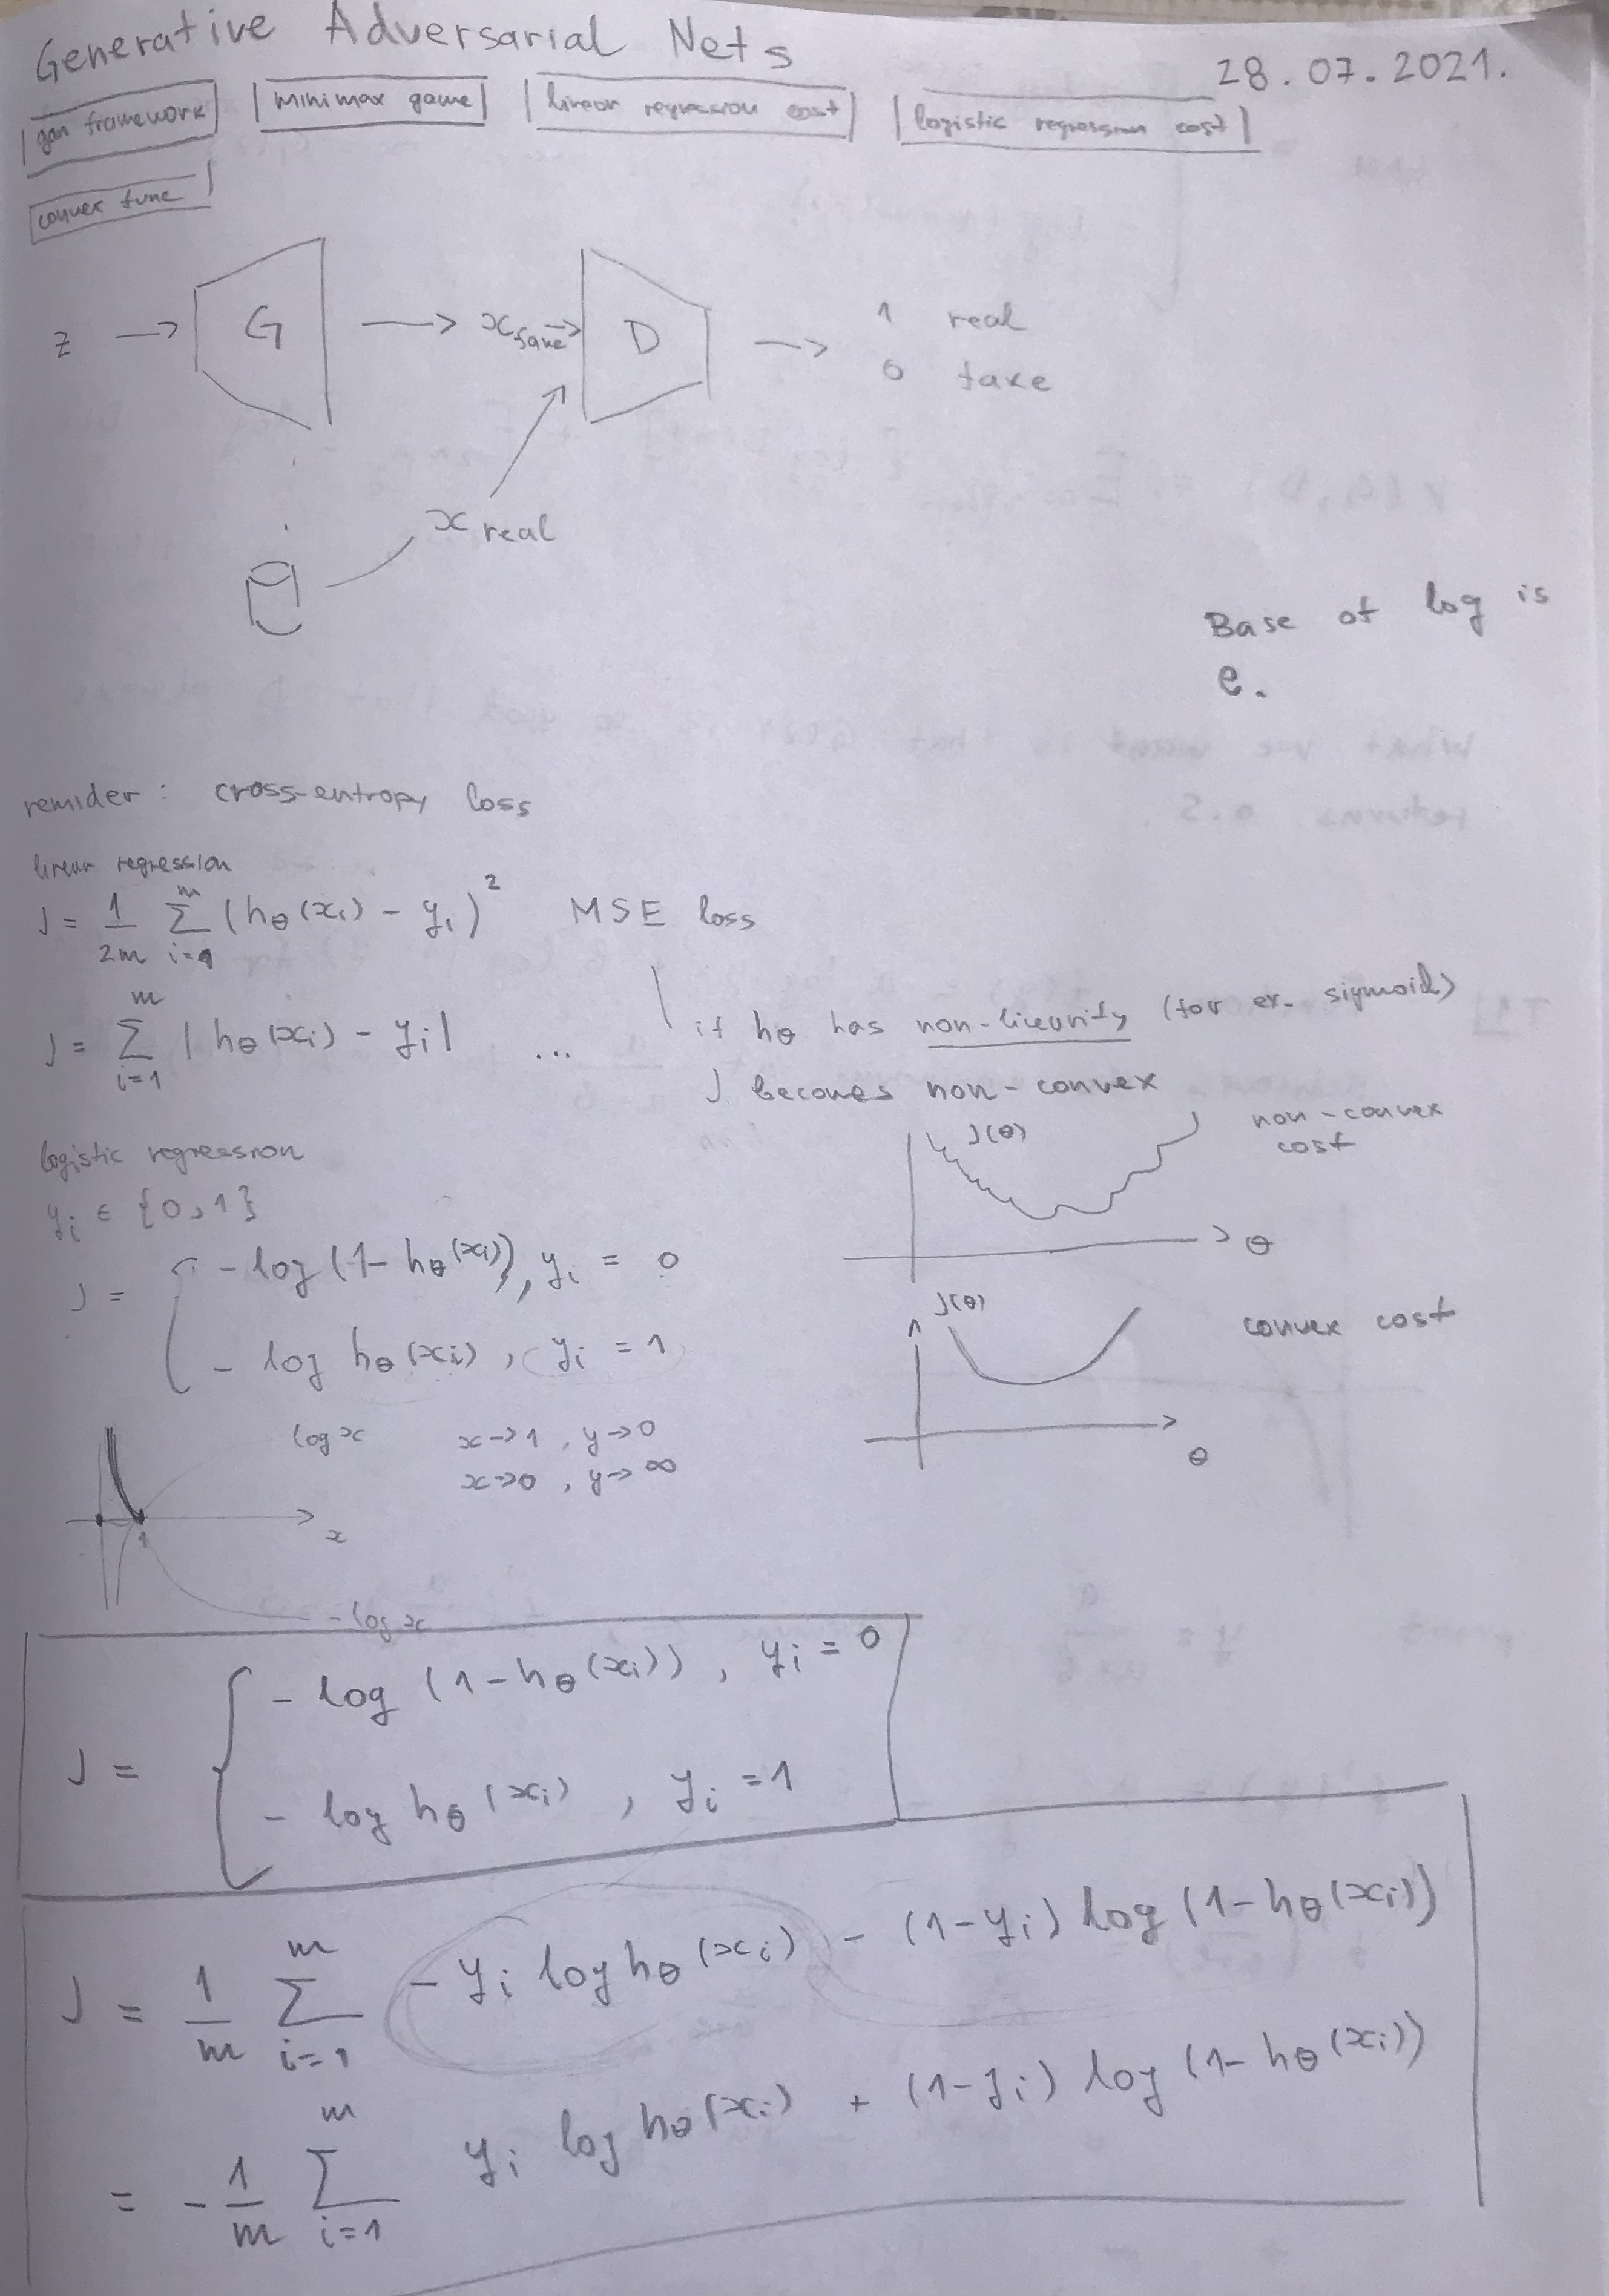 Generative Adversarial Nets
28.07.2021.
gan framework
minimax game
linear regression cost
logistic regression cost
convex func
z → G → x_fake → D → 1 real
0 fake
x real
Base of log is
e.
remider : cross-entropy loss
linear regression
J = 1/2m Σ_{i=1}^{m} (hθ(xi) - yi)² MSE loss
J = Σ_{i=1}^{m} |hθ(xi) - yi| ...
if hθ has non-linearity (for ex. sigmoid)
J becomes non-convex
J(θ)
non-convex
cost
θ
logistic regression
yi ∈ {0,1}
J = { -log (1-hθ(xi)), yi = 0
- log hθ(xi), yi = 1
J(θ)
convex cost
θ
log x
x→1, y→0
x→0, y→∞
1
x
-log x
J = { - log (1-hθ(xi)), yi = 0
- log hθ(xi), yi = 1
J = 1/m Σ_{i=1}^{m} -yi log hθ(xi) - (1-yi) log (1-hθ(xi))
= -1/m Σ_{i=1}^{m} yi log hθ(xi) + (1-yi) log (1-hθ(xi))